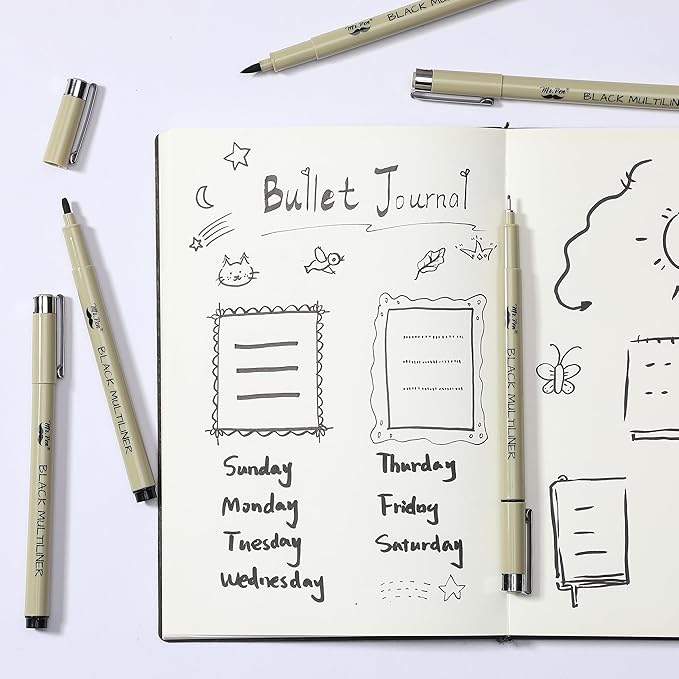 Mr. Pen
BLACK MULTILINER
Mr. Pen
BLACK MULTILINER
Bullet Journal
Mr. Pen
BLACK MULTILINER
Mr. Pen
BLACK MULTILINER
Mr. Pen
BLACK MULTILINER
Sunday
Monday
Tuesday
Wednesday
Thurday
Friday
Saturday